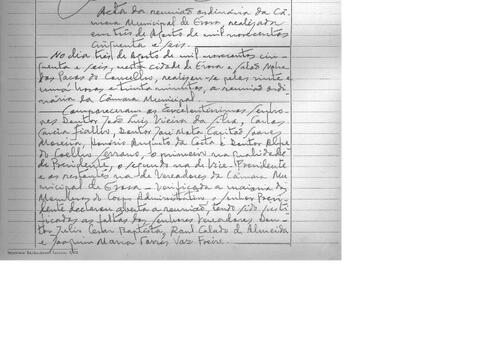 Acta da reunião ordinária da Câ-
mara Municipal de Evora, realizada
em três de Agosto de mil novecentos
cinquenta e seis.
No dia três de Agosto de mil novecentos cin-
quenta e seis, nesta cidade de Evora e salão Nobre
dos Paços do Concelho, realizou-se pelas vinte e
uma horas e trinta minutos, a reunião ordi-
nária da Câmara Municipal.
Compareceram os Excelentíssimos senho-
res Doutor João Luis Vieira da Silva, Carlos
Garcia Fialho, Doutor José Mata Soares
Moreira, Honório Augusto da Costa e Doutor
Coelho Serrano, o primeiro na qualidade
de Presidente, o segundo na de Vice-Presidente
e os restantes na de Vereadores da Câmara Mu-
nicipal de Evora - verificada a maioria dos
Membros do Corpo Administrativo o senhor Presi-
dente declarou aberta a reunião, tendo sido justi-
ficadas as faltas dos senhores vereadores Dou-
tor Julio Cesar Baptista, Raul Calado de Almeida
e Joaquim Maria Torres Vaz Freire.